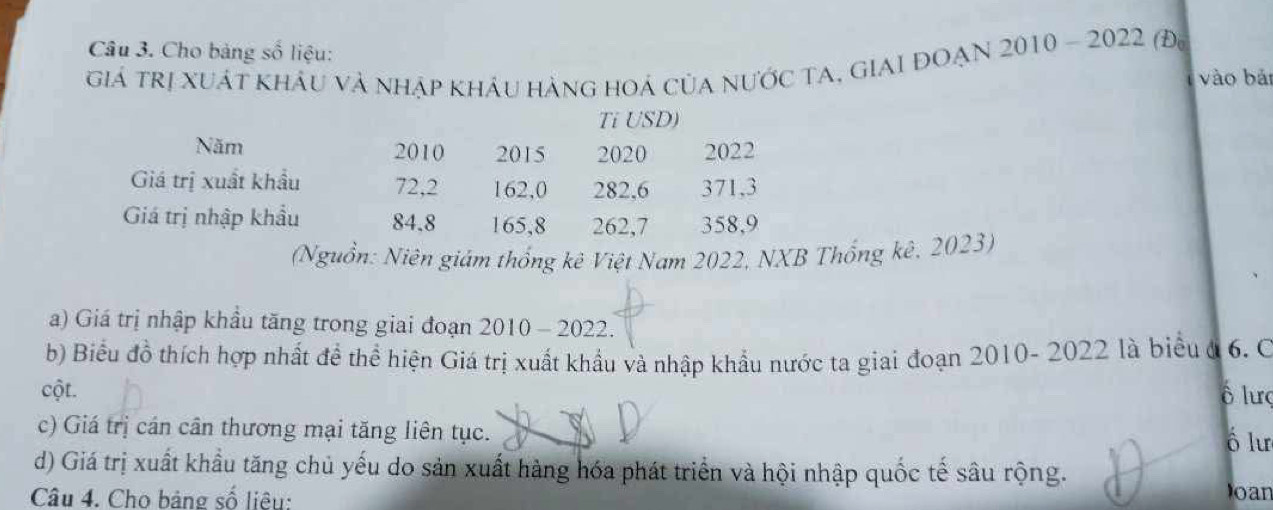 Câu 3. Cho bảng số liệu:
GIÁ TRỊ XUẤT KHẨU VÀ NHẬP KHẨU HÀNG HOÁ CỦA NƯỚC TA, GIAI ĐOẠN 2010 – 2022 (Đ
vào bản
Tỉ USD)
Năm 2010 2015 2020 2022
Giá trị xuất khẩu 72,2 162,0 282,6 371,3
Giá trị nhập khẩu 84,8 165,8 262,7 358,9
(Nguồn: Niên giám thống kê Việt Nam 2022, NXB Thống kê, 2023)
a) Giá trị nhập khẩu tăng trong giai đoạn 2010 – 2022. Đ
b) Biểu đồ thích hợp nhất để thể hiện Giá trị xuất khẩu và nhập khẩu nước ta giai đoạn 2010- 2022 là biểu đ 6. C
cột. Đ
ố lượ
c) Giá trị cán cân thương mại tăng liên tục. Đ
ố lư
d) Giá trị xuất khẩu tăng chủ yếu do sản xuất hàng hóa phát triển và hội nhập quốc tế sâu rộng. Đ
oan
Câu 4. Cho bảng số liệu: